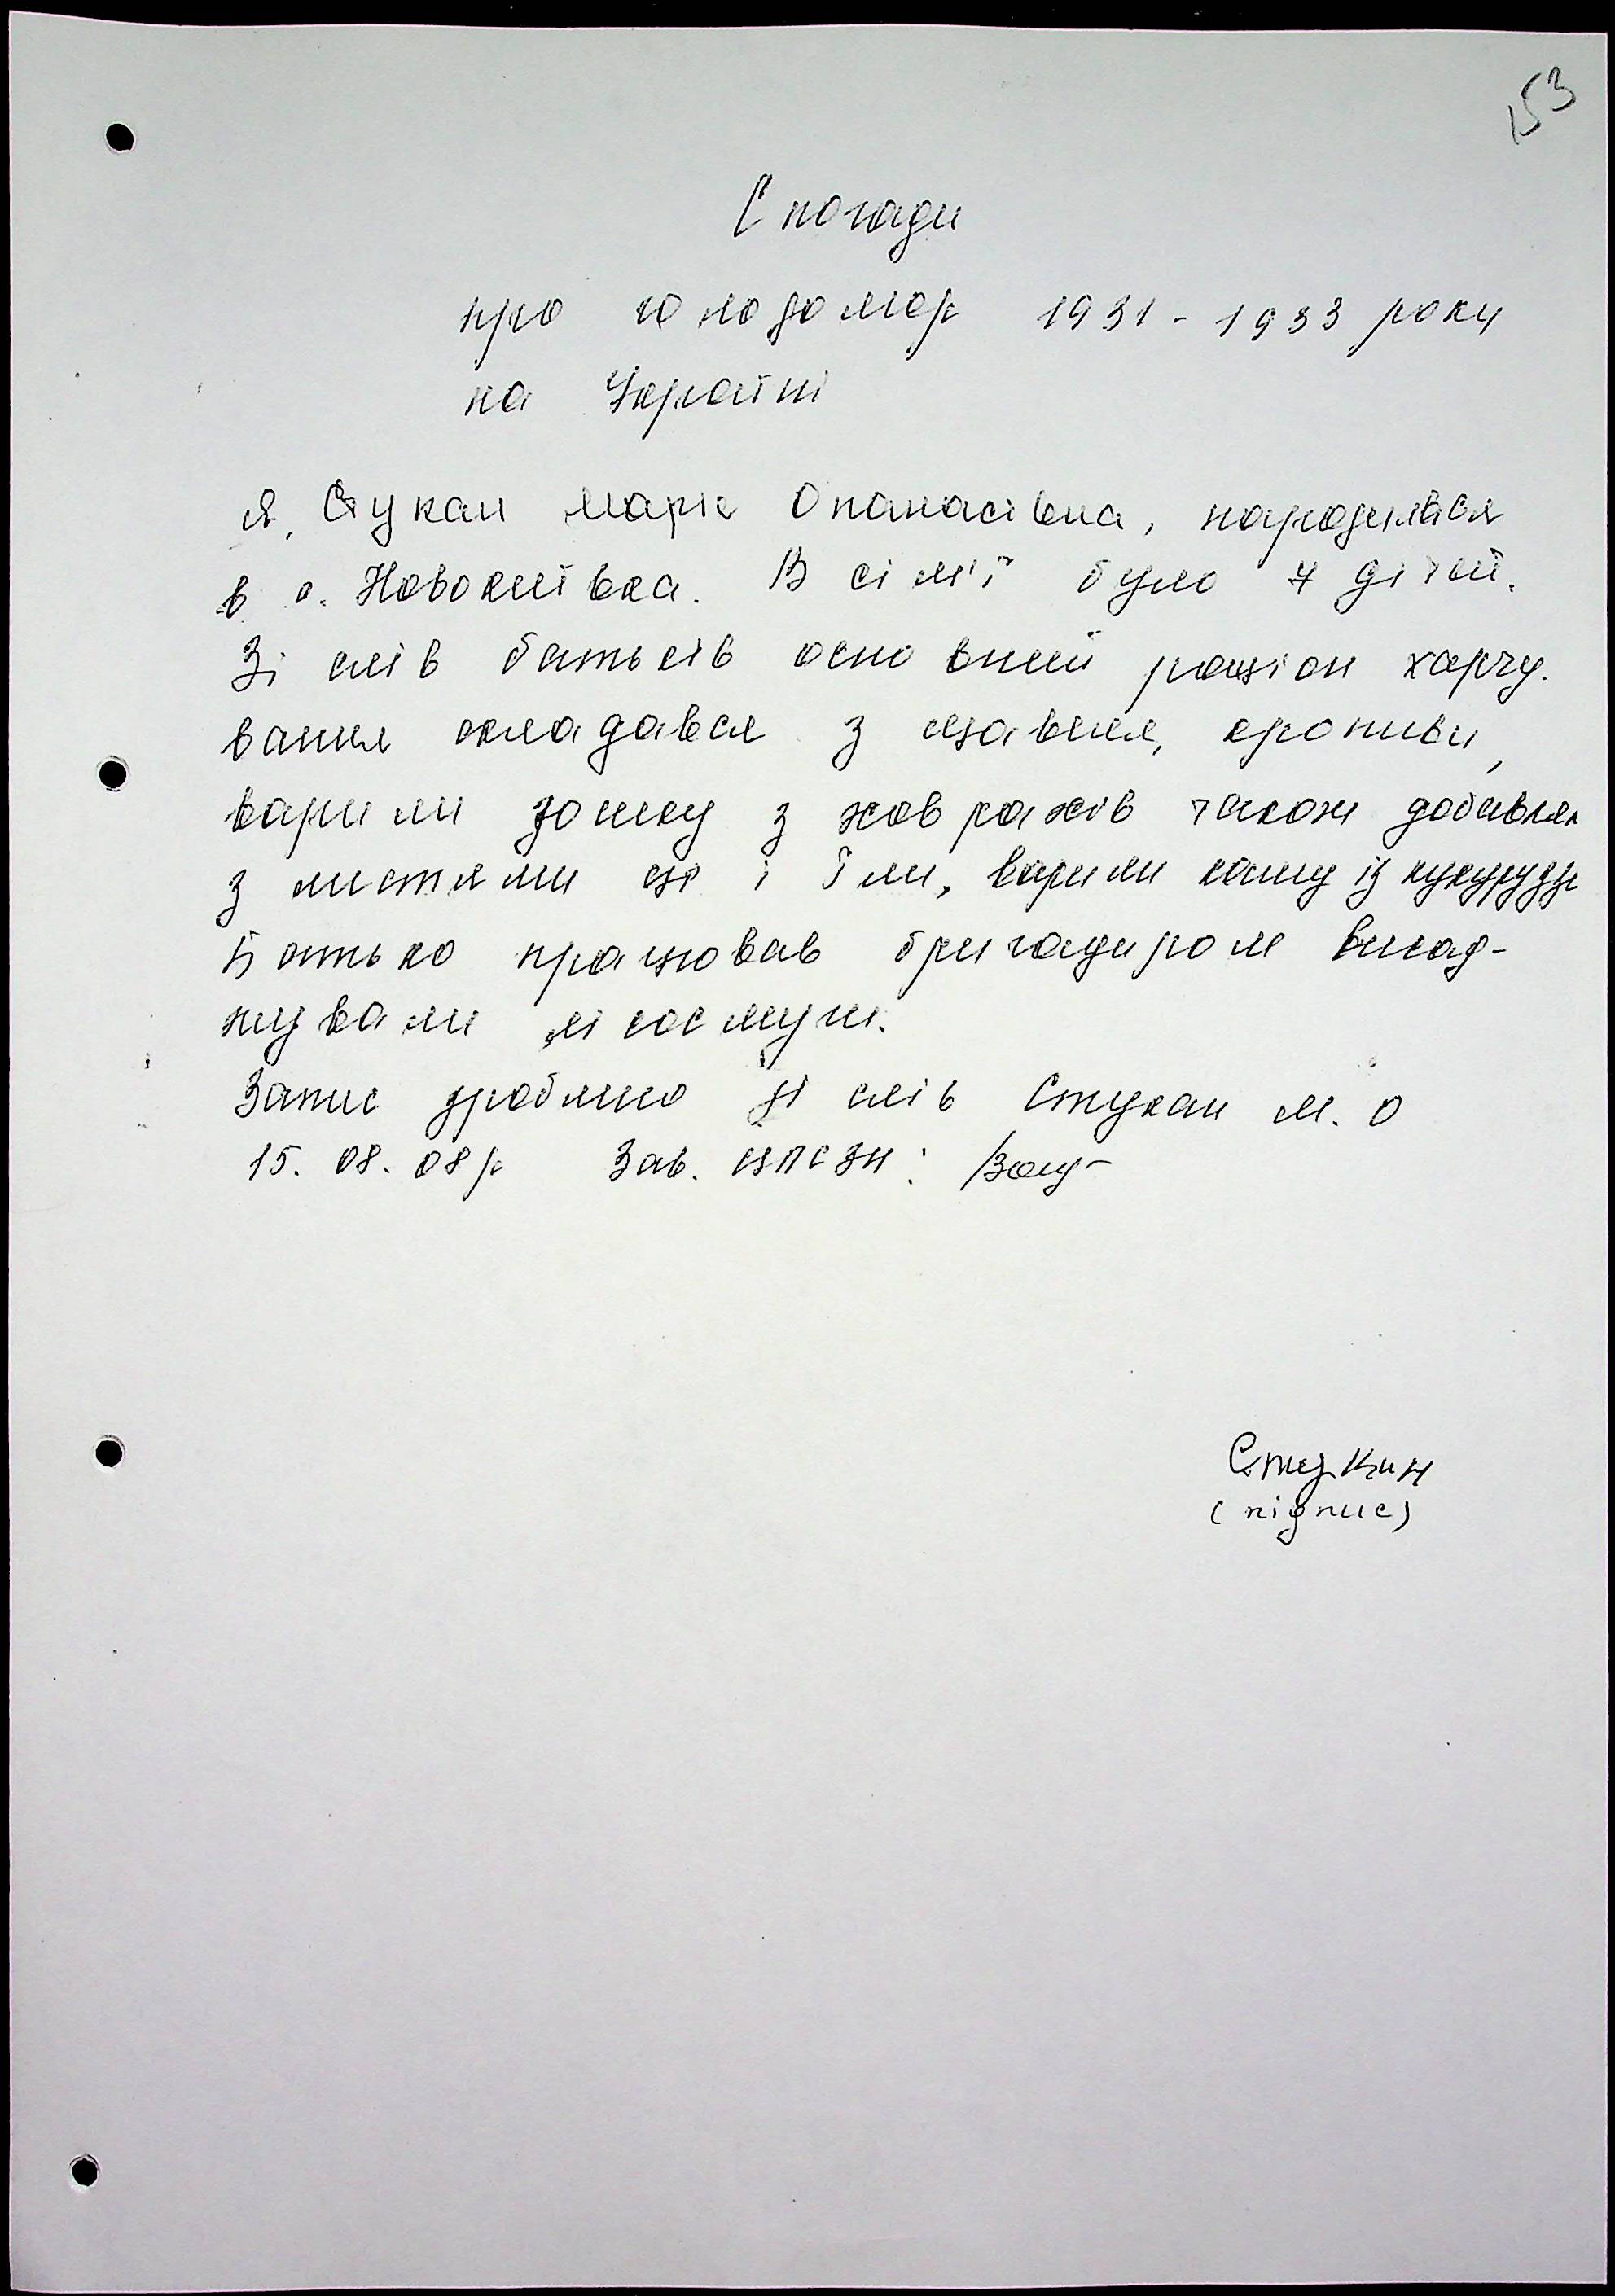 153
Спогади
про голодомор 1931-1933 року
на Україні
Я, Стукан Марія Опанасівна, народилася
в с. Новокиївка. В сім'ї було 4 дітей.
Зі слів батьків основний раціон харчу-
вання складався з щавлия, кропиви,
варили юшку з ховрахів також добавлял
з листями це і їли, варили кашу із кукурудзи
Батько працював бригадиром висад-
жували лісосмуги.
Запис зроблено зі слів Стукан М. О
15. 08. 08 р Зав. ЦПСЗН:
Стукан
(підпис)